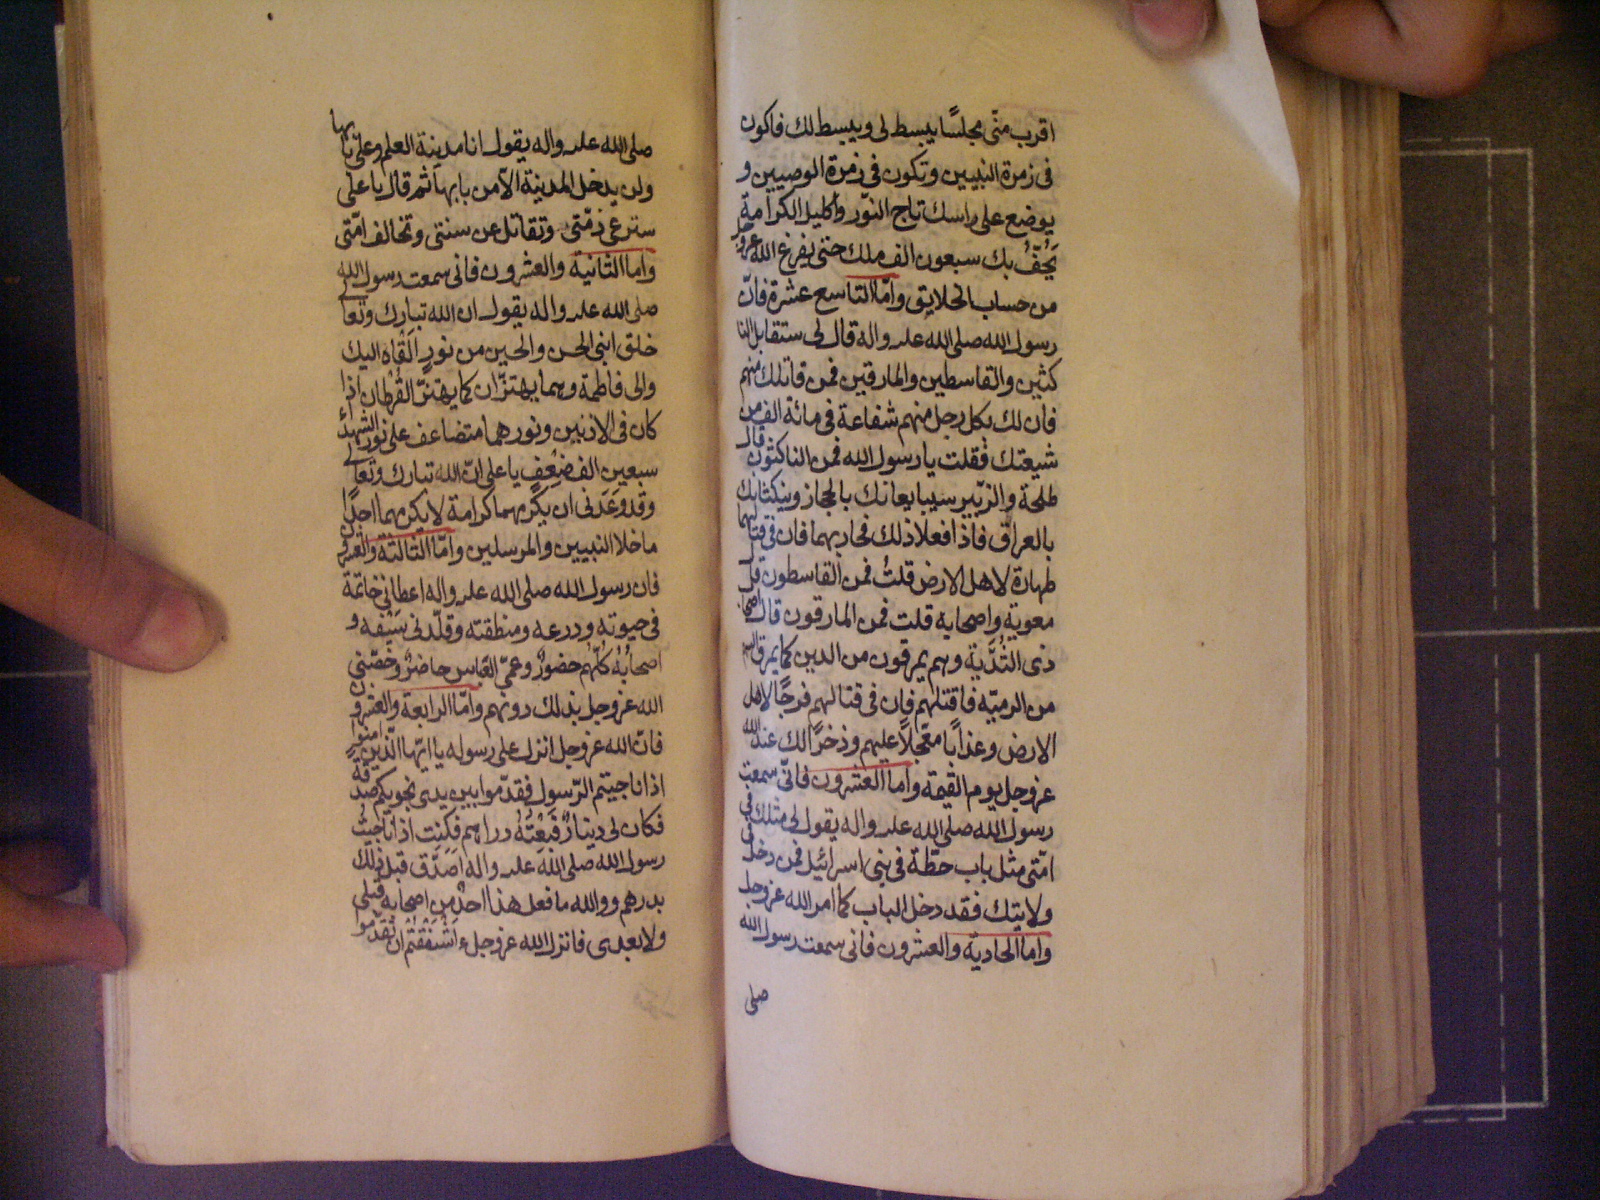 اقرب منّى مجلسًا يبسط لى ويبسط لك فاكون
فى زمرة النبيين وتكون فى زمرة الوصيين و
يوضع على راسك تاج النّور واكليل الكرامة
يُحَفُّ بك سبعون الف ملك حتى يفرغ الله عزوجل
من حساب الخلايق وامّا التاسع عشرة فانّ
رسول الله صلى الله عليه واله قال لى ستقاتل النا
كثين والقاسطين والمارقين فمن قاتلك منهم
فان لك بكل رجل منهم شفاعة فى مائة الف من
شيعتك فقلت يا رسول الله فمن الناكثون قال
طلحة والزّبير سيبايعانك بالحجاز وينكثانك
بالعراق فاذا فعلا ذلك فحاربهما فان فى قتالهما
طهارة لاهل الارض قلتُ فمن القاسطون قال
معوية واصحابه قلت فمن المارقون قال اصحاب
ذى الثُدَّية وهم يمرقون من الدين كما يمرق السهم
من الرميّة فاقتلهم فان فى قتالهم فرجًا لاهل
الارض وعذابا معجّلاً عليهم وذخرًا لك عند الله
عزوجل يوم القيمة واما العشرون فانّى سمعت
رسول الله صلى الله عليه واله يقول لى مثلك فى
امّتى مثل باب حطّة فى بنى اسرائيل فمن دخل فى
ولايتك فقد دخل الباب كما امر الله عزوجل
واما الحادية والعشرون فانى سمعت رسول الله
صلى
صلى الله عليه واله يقول انا مدينة العلم وعلىّ بابها
ولن يدخل المدينة الاّ من بابها ثم قال يا على
سترعى ذمّتى وتقاتل عن سنتى وتخالف امّتى
واما الثانية والعشرون فانى سمعت رسول الله
صلى الله عليه واله يقول ان الله تبارك وتعالى
خلق ابنى الحسن والحسين من نورٍ القاه اليك
والى فاطمة وهما يهتزّان كما يهتزّ القُرطان اذا
كان فى الاذنين ونورهما متضاعف على نور الشهداء
سبعين الف ضعفٍ يا على انّ الله تبارك وتعالى
وقد وَعَدنى ان يكرّمهما كرامة لا يكرم بها احدًا
ما خلا النبيين والمرسلين وامّا الثالثة والعشرون
فان رسول الله صلى الله عليه واله اعطانى خاتمة
فى حيوته ودرعه ومنطقته وقلّدنى سَيْفه و
اصحابُهُ كلّهُم حضورٌ وعمّى العباس حاضرٌ وخصّنى
الله عزوجل بذلك دونهم وامّا الرابعة والعشرو
فانّ الله عزوجل انزل على رسوله يا ايّها الّذين امنوا
اذا ناجيتم الرّسول فقدّموا بين يدى نجويكم صدقة
فكان لى دينارٌ فَبِعْتُهُ دراهم فكنت اذا ناجيتُ
رسول الله صلى الله عليه واله اصّدّق قبل ذلك
بدرهم ووالله ما فعل هذا احدٌ من اصحابه قبلى
ولا بعدى فانزل الله عزوجل ءَاَشْفَقْتُمْ ان تُقَدِّموا